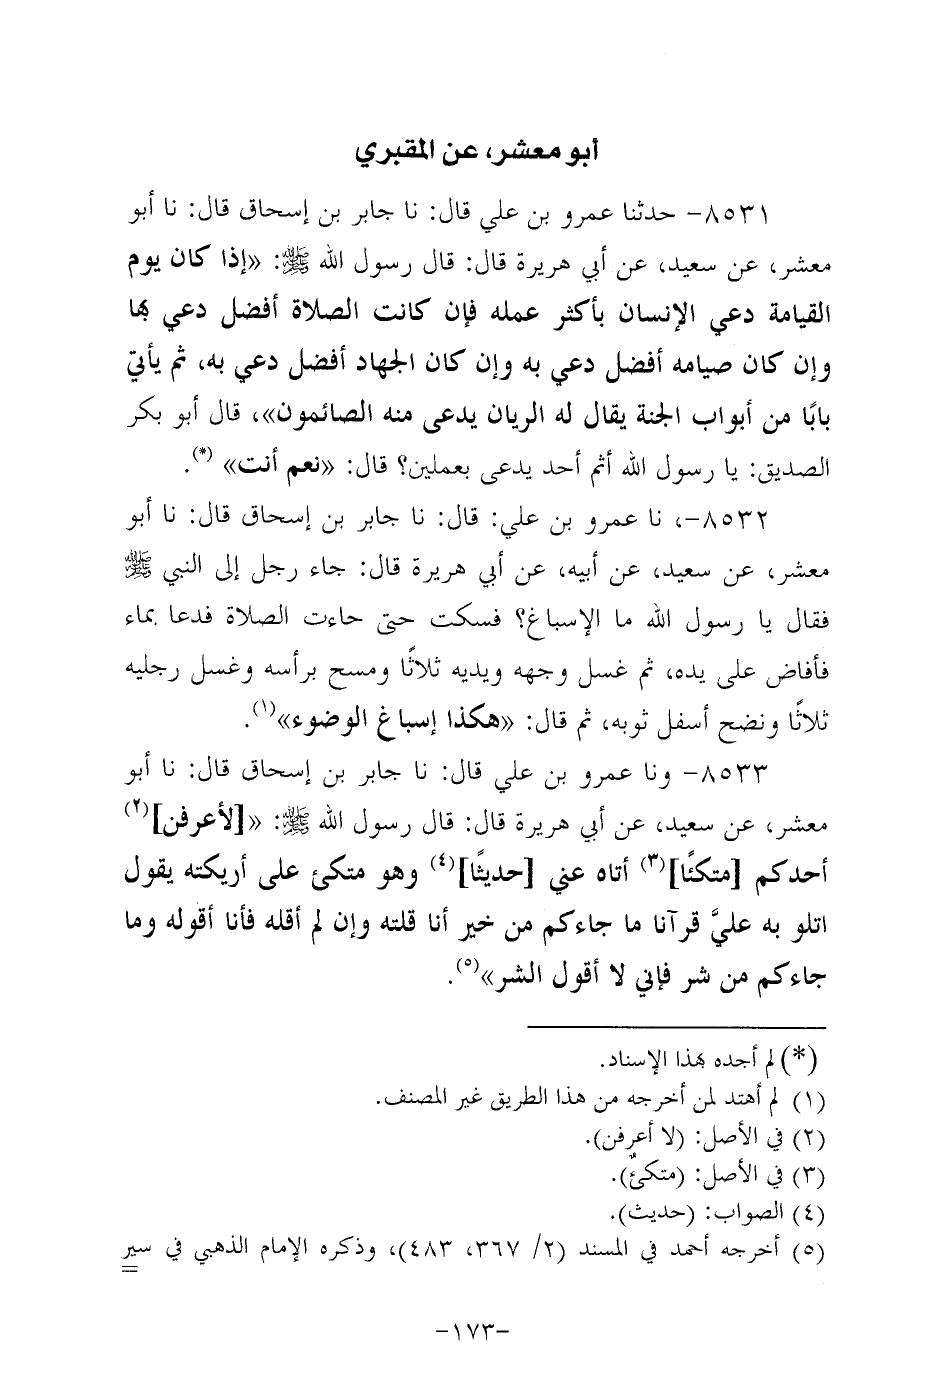 أبو معشر، عن المقبري
٨٥٣١- حدثنا عمرو بن علي قال: نا جابر بن إسحاق قال: نا أبو
معشر، عن سعيد، عن أبي هريرة قال: قال رسول الله ﷺ: «إذا كان يوم
القيامة دعي الإنسان بأكثر عمله فإن كانت الصلاة أفضل دعي بها
وإن كان صيامه أفضل دعي به وإن كان الجهاد أفضل دعي به، ثم يأتي
بابًا من أبواب الجنة يقال له الريان يدعى منه الصائمون»، قال أبو بكر
الصديق: يا رسول الله أثم أحد يدعى بعملين؟ قال: «نعم أنت» (*).
٨٥٣٢-، نا عمرو بن علي: قال: نا جابر بن إسحاق قال: نا أبو
معشر، عن سعيد، عن أبيه، عن أبي هريرة قال: جاء رجل إلى النبي ﷺ
فقال يا رسول الله ما الإسباغ؟ فسكت حتى حاءت الصلاة فدعا بماء
فأفاض على يده، ثم غسل وجهه ويديه ثلاثًا ومسح برأسه وغسل رجليه
ثلاثًا ونضح أسفل ثوبه، ثم قال: «هكذا إسباغ الوضوء»(١).
٨٥٣٣- ونا عمرو بن علي قال: نا جابر بن إسحاق قال: نا أبو
معشر، عن سعيد، عن أبي هريرة قال: قال رسول الله ﷺ: «[لأعرفن](٢)
أحدكم [متكئًا](٣) أتاه عني [حديثًا](٤) وهو متكئ على أريكته يقول
اتلو به عليَّ قرآنا ما جاءكم من خير أنا قلته وإن لم أقله فأنا أقوله وما
جاءكم من شر فإني لا أقول الشر»(٥).
(*) لم أجده بهذا الإسناد.
(١) لم أهتد لمن أخرجه من هذا الطريق غير المصنف.
(٢) في الأصل: (لا أعرفن).
(٣) في الأصل: (متكئٌ).
(٤) الصواب: (حديث).
(٥) أخرجه أحمد في المسند (٢/ ٣٦٧، ٤٨٣)، وذكره الإمام الذهبي في سير
-١٧٣-